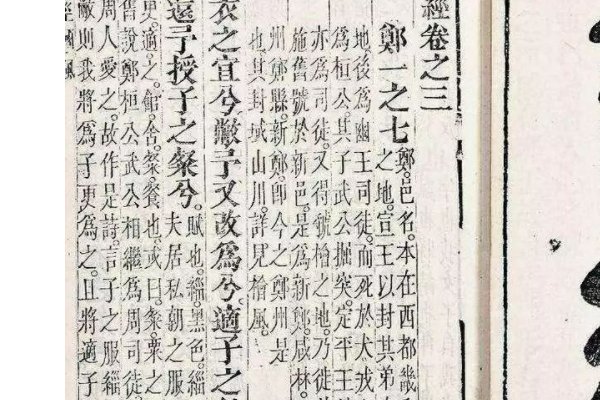 經卷之三
鄭一之七
鄭。邑名。本在西都畿
之地。宣王以封其弟
地。後爲幽王司徒。而死於犬戎
爲桓公。其子武公掘突。定平王
亦爲司徒。又得虢檜之地。乃徙
施舊號於新邑。是爲新鄭。咸林
州鄭縣。新鄭。即今之鄭州是
也。其封域山川。詳見檜風。
衣之宜兮。敝予又改爲兮。適子之
還予授子之粲兮。
賦也。緇。黑色。緇
夫居私朝之服
更。適。之。館。舍。粲。餐也。或曰。粲。粟之
舊說。鄭桓公武公。相繼爲周司徒
周人愛之。故作是詩。言子之服緇
敝。則我將爲子更爲之。且將適子